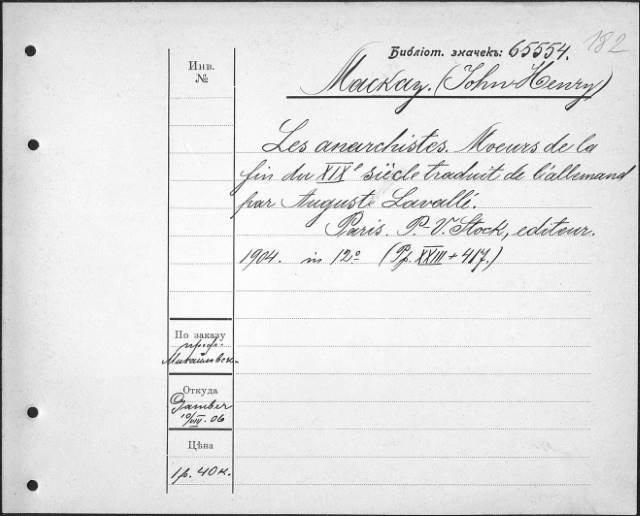 182
Библіот. значекъ: 65554.
Инв.
№
Mackay. (John Henry)
Les anarchistes. Moeurs de la
fin du XIXe siècle traduit de l'allemand
par Auguste Lavallé.
Paris. P.-V. Stock, editeur.
1904. in 12º (Pp. XXIII + 417.)
По заказу
проф.
Откуда
10/VIII-06
Цѣна
1 р. 40 к.